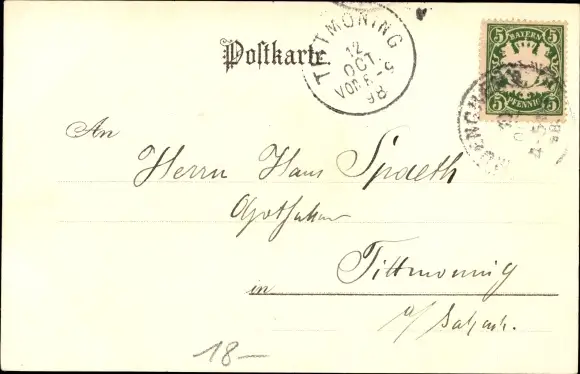 Postkarte.
TITTMONING
12
OCT
VOR 8-9
98
5 BAYERN 5
5 PFENNIG 5
MUENCHEN
An
Herrn Hans Spaeth
Apotheker
in Tittmoning
a/Salzach.
18—